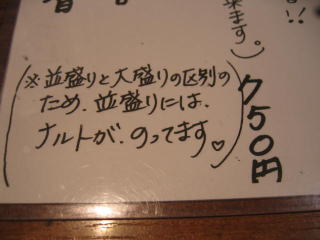 !!
来ます。)
750円
(※並盛りと大盛りの区別の
ため、並盛りには、
ナルトが、のってます♡)